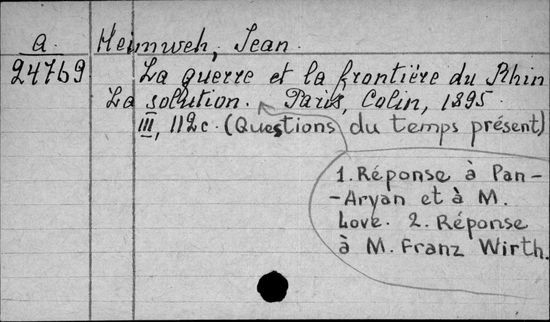 a. Heimweh, Jean.
24769 La guerre et la frontière du Rhin
La solution. Paris, Colin, 1895.
III, 112c. (Questions du temps présent)
1. Réponse à Pan-
-Aryan et à M.
Love. 2. Réponse
à M. Franz Wirth.